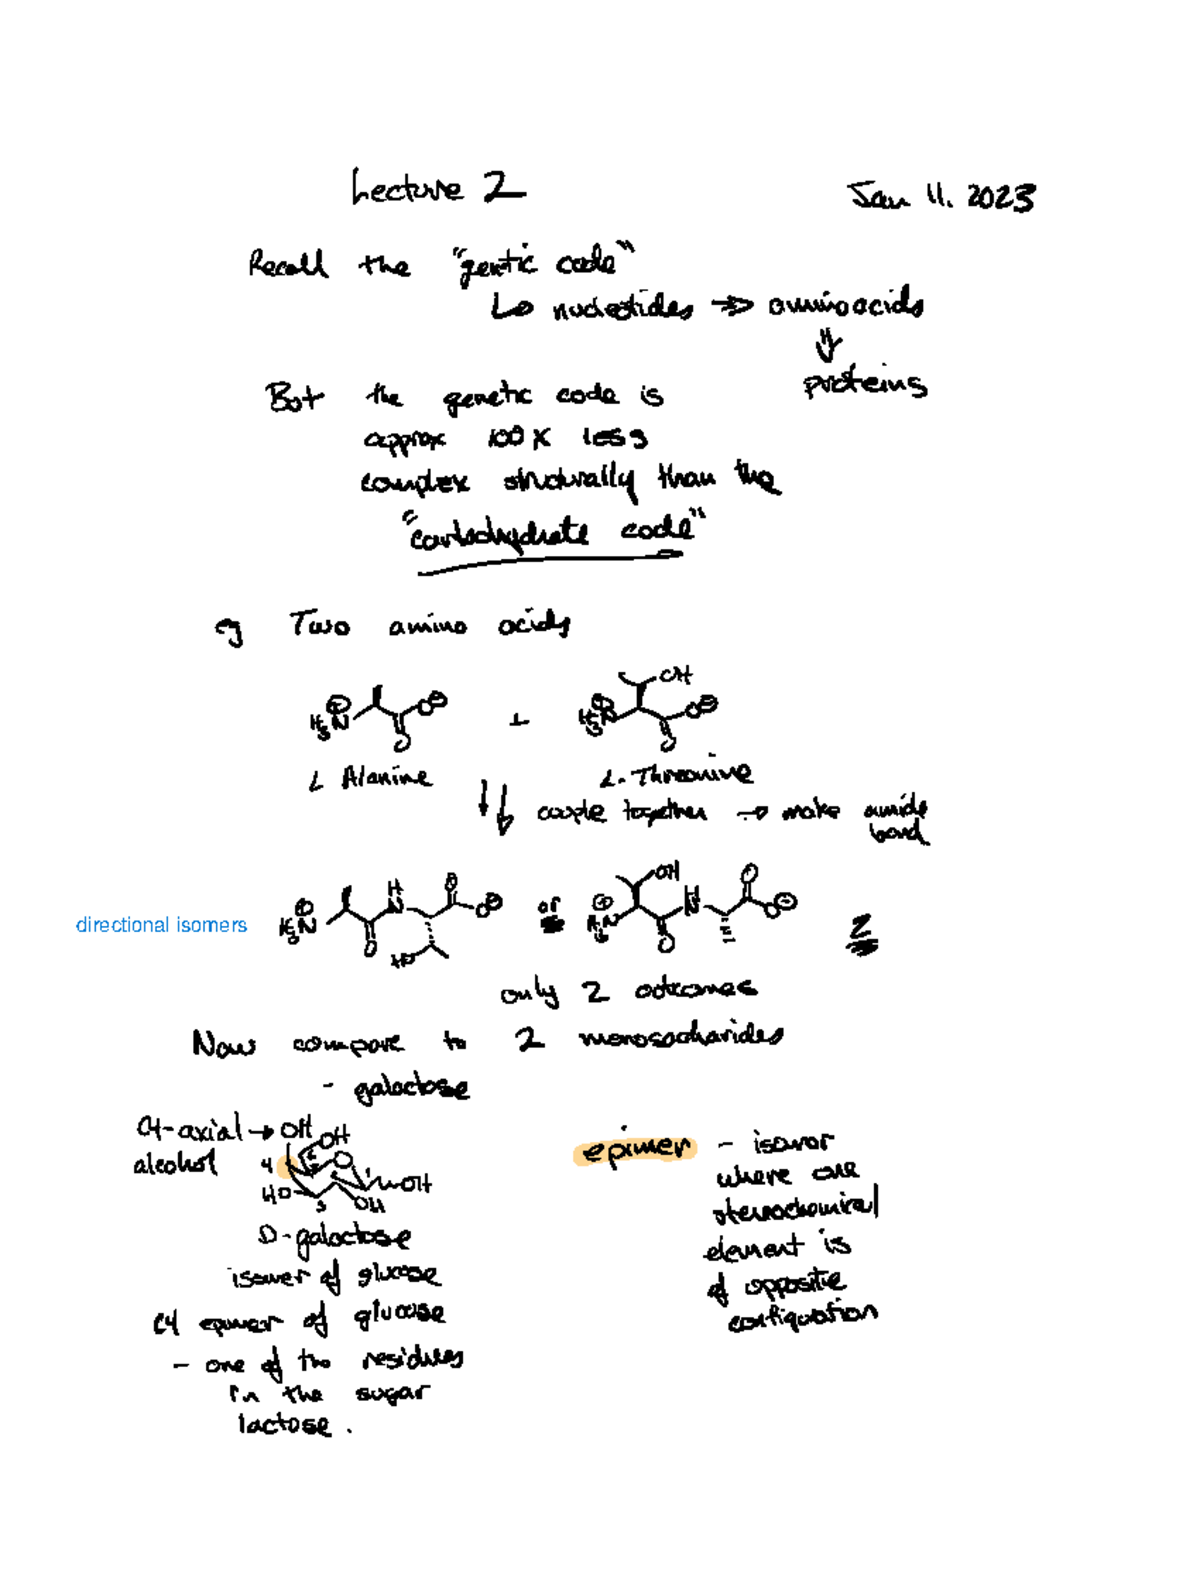 Lecture 2
Jan 11. 2023
Recall the "gentic code"
↳ nucleotides ⇒ amino acids
⇓
proteins
But the genetic code is
approx 100 X less
complex structurally than the
"carbohydrate code"
eg Two amino acids
H3N⊕ O O⊖ + H3N⊕ OH O O⊖
L Alanine L-Threonine
↓↓ couple together → make amide
bond
directional isomers
H3N⊕ O H N O O⊖ HO or H3N⊕ OH O H N O O⊖ 2
only 2 outcomes
Now compare to 2 monosaccharides
- galactose
C4-axial → OH
alcohol
OH
4 6 5 O
HO 3 2 1 OH
OH
D-galactose
isomer of glucose
C4 epimer of glucose
- one of the residues
in the sugar
lactose.
epimer - isomer
where one
stereochemical
element is
of oppositie
configuration